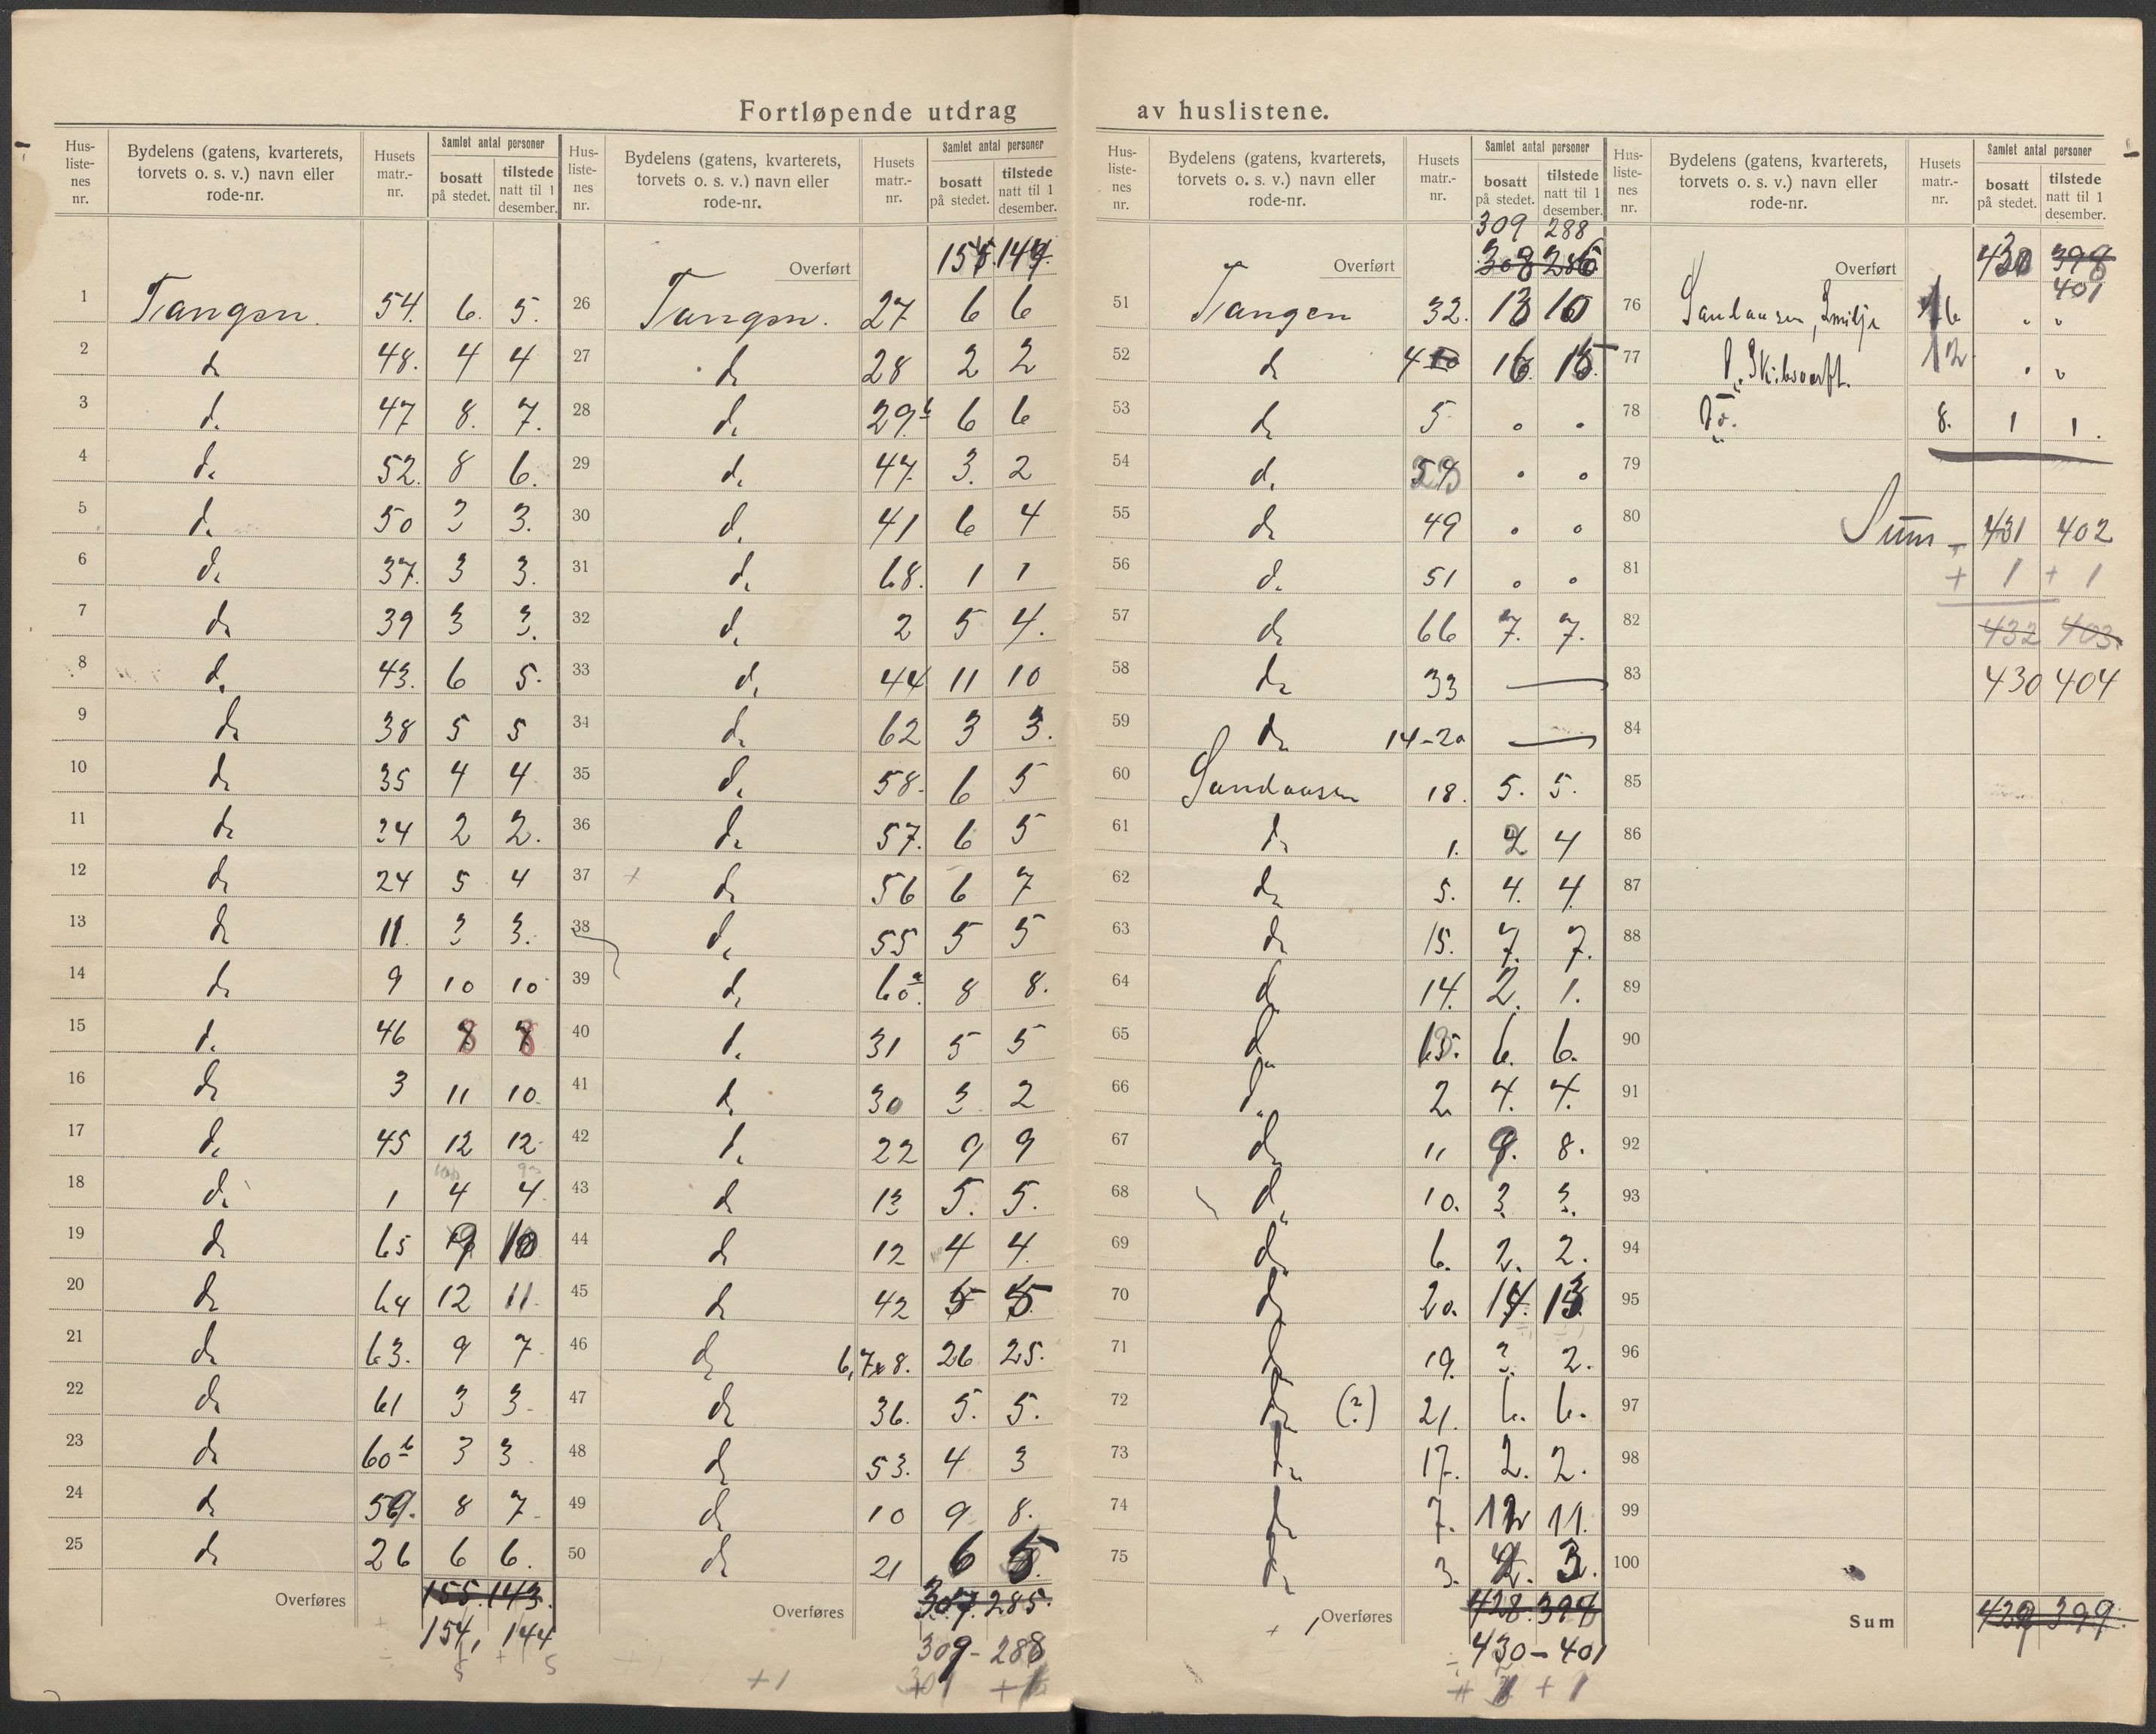 Fortløpende utdrag av huslistene.
Hus-liste-nes nr. Bydelens (gatens, kvarterets, torvets o. s. v.) navn eller rode-nr. Husets matr.-nr. Samlet antal personer bosatt på stedet. tilstede natt til 1 desember.
1 Tangen. 54. 6. 5.
2 do 48. 4 4
3 do 47 8. 7.
4 do 52. 8 6.
5 do 50 3 3.
6 do 37. 3 3.
7 do 39 3 3.
8 do 43. 6 5.
9 do 38 5 5
10 do 35 4 4
11 do 34 2 2.
12 do 24 5 4
13 do 11. 3 3.
14 do 9 10 10
15 do 46 8 8
16 do 3 11 10.
17 do 45 12 12
18 do 1 4 4
19 do 65 9 10
20 do 64 12 11
21 do 63. 9 7
22 do 61 3 3
23 do 60 b 3 3
24 do 59. 8 7
25 do 26 6 6.
Overføres 155. 143.
154, 144
Hus-liste-nes nr. Bydelens (gatens, kvarterets, torvets o. s. v.) navn eller rode-nr. Husets matr.-nr. Samlet antal personer bosatt på stedet. tilstede natt til 1 desember.
Overført
26 Tangen. 27 6 6
27 do 28 2 2
28 do 29 b 6 6
29 do 47. 3. 2
30 do 41 6 4
31 do 68. 1 1
32 do 2 5 4.
33 do 44 11 10
34 do 62 3 3.
35 do 58. 6 5
36 do 57. 6 5
37 do 56 6 7
38 do 55 5 5
39 do 60 a 8 8.
40 do 31 5 5
41 do 30 3 2
42 do 22 9 9
43 do 13 5. 5.
44 do 12 4 4.
45 do 42 5 5
46 do 6, 7 x 8. 26 25.
47 do 36. 5. 5.
48 do 53. 4 3
49 do 10 9 8.
50 do 21 6 5
Overføres 307. 285.
309 - 288
+1
Hus-liste-nes nr. Bydelens (gatens, kvarterets, torvets o. s. v.) navn eller rode-nr. Husets matr.-nr. Samlet antal personer bosatt på stedet. tilstede natt til 1 desember.
309 288
Overført 308 286
51 Tangen 32. 13 10
52 do 4 16 15
53 do 5 " "
54 do " "
55 do 49 " "
56 do 51 " "
57 do 66 7. 7.
58 do 33 —
59 do 14-20 —
60 Sandaasen 18. 5. 5.
61 do 1. 4
62 do 5. 4. 4.
63 do 15. 7. 7.
64 do 14. 2. 1.
65 do 6. 6.
66 do 2. 4. 4.
67 do 11 8.
68 do 10. 3. 3.
69 do 6. 2. 2.
70 do 20. 14. 13.
71 do 19. 3. 2.
72 do (?) 21. 6. 6.
73 do 17. 2. 2.
74 do 7. 12 11.
75 do 3. 3.
Overføres 428. 398
430 - 401
Hus-liste-nes nr. Bydelens (gatens, kvarterets, torvets o. s. v.) navn eller rode-nr. Husets matr.-nr. Samlet antal personer bosatt på stedet. tilstede natt til 1 desember.
Overført 430 398
401
76 Sandaasen, Emilje 16 " "
77 do Skibsverft. 12 " "
78 do. 8. 1 1.
79
80 Sum — 431 402
81 + 1 + 1
82 432 403.
83 430 404
84
85
86
87
88
89
90
91
92
93
94
95
96
97
98
99
100
Sum 429 399.